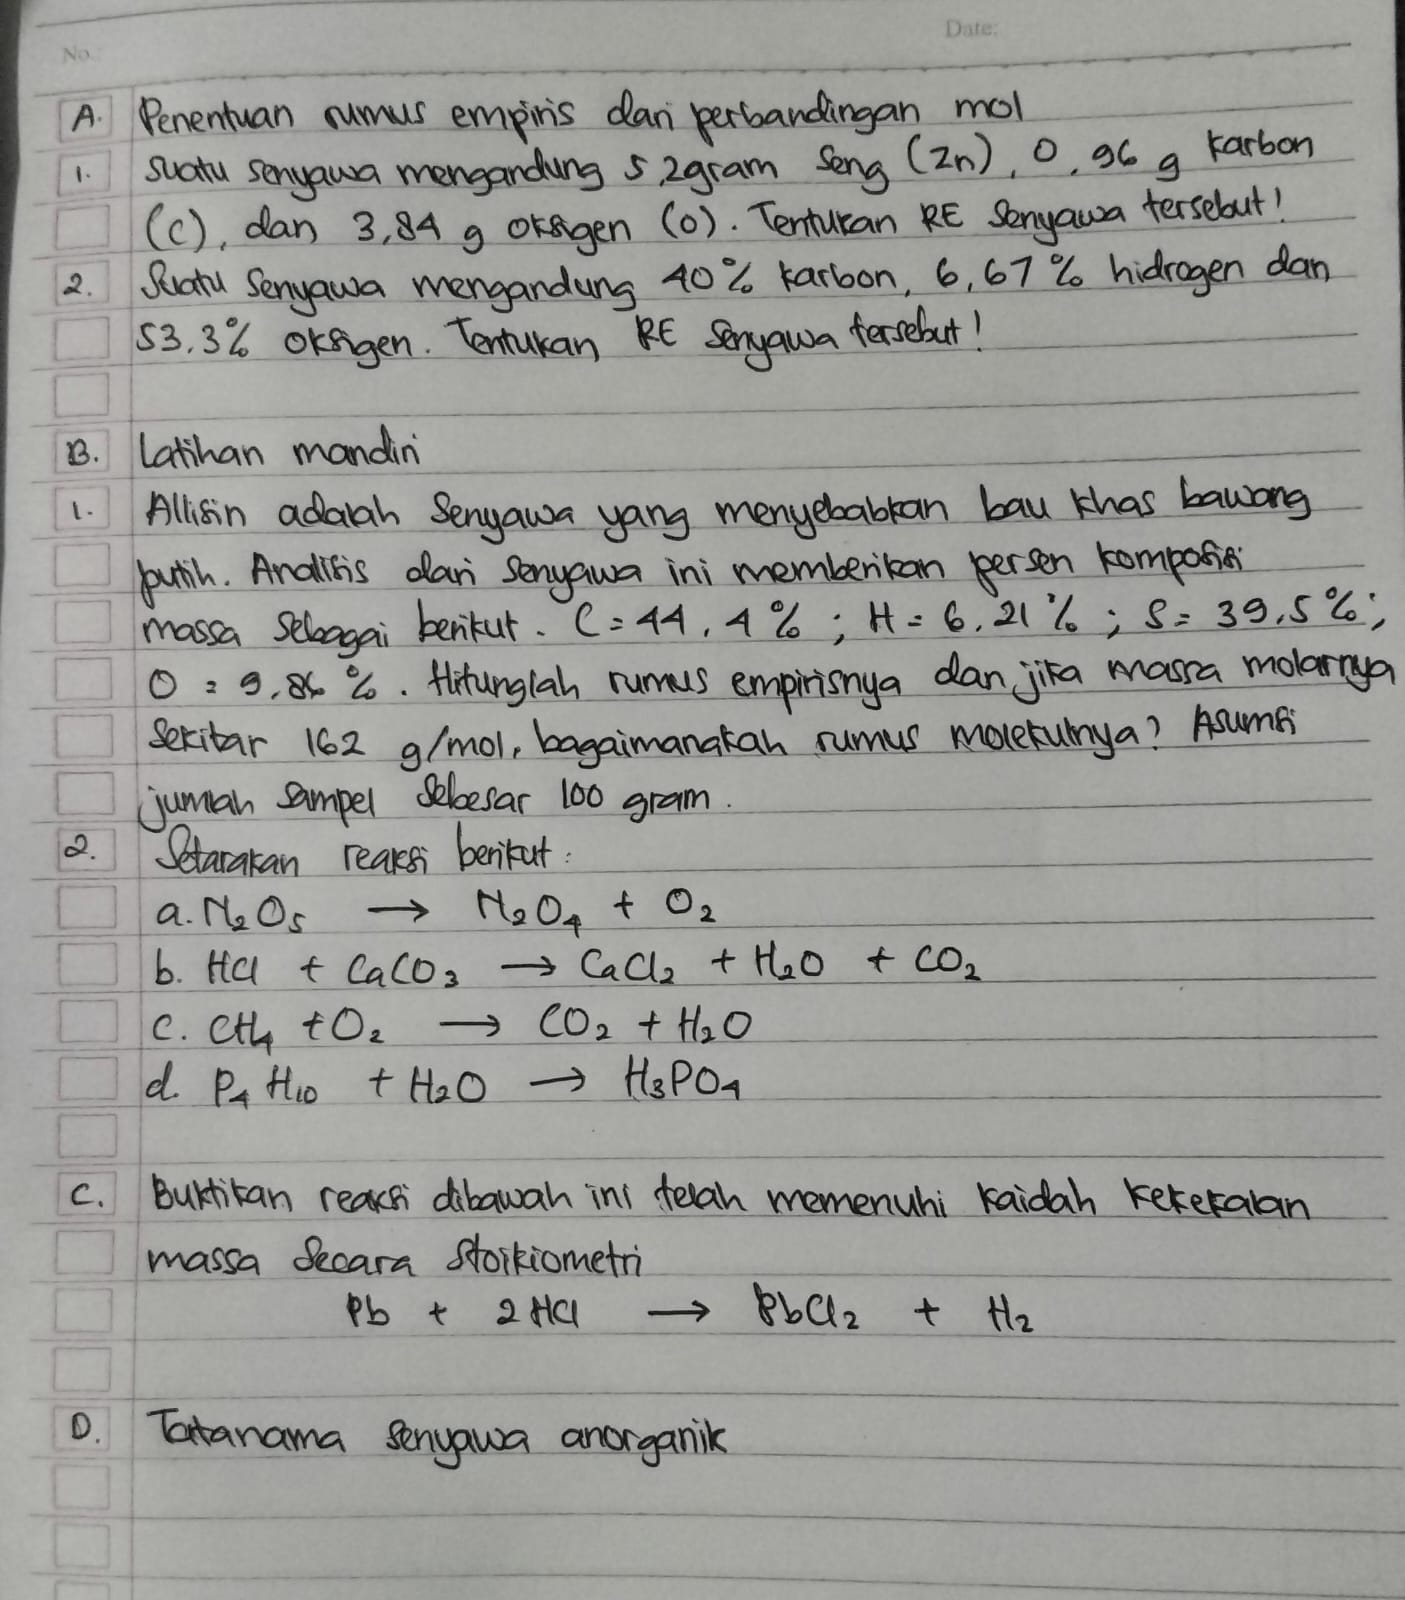 No.
Date:
A. Penentuan rumus empiris dari perbandingan mol
1. Suatu senyawa mengandung 5,2gram Seng (Zn), 0,96 g karbon
(C), dan 3,84 g oksigen (O). Tentukan RE Senyawa tersebut!
2. Suatu Senyawa mengandung 40% karbon, 6,67% hidrogen dan
53,3% oksigen. Tentukan RE Senyawa tersebut!
B. Latihan mandiri
1. Allisin adalah Senyawa yang menyebabkan bau khas bawang
putih. Analisis dari senyawa ini memberikan persen komposisi
massa sebagai berikut. C = 44,4% ; H = 6,21% ; S = 39,5% ;
O = 9,86%. Hitunglah rumus empirisnya dan jika massa molarnya
Sekitar 162 g/mol, bagaimanakah rumus molekulnya? Asumsi
jumlah sampel sebesar 100 gram.
2. Setarakan reaksi berikut :
a. N₂O₅ → N₂O₄ + O₂
b. HCl + CaCO₃ → CaCl₂ + H₂O + CO₂
c. CH₄ + O₂ → CO₂ + H₂O
d. P₄H₁₀ + H₂O → H₃PO₄
C. Buktikan reaksi dibawah ini telah memenuhi kaidah kekekalan
massa secara stoikiometri
Pb + 2 HCl → PbCl₂ + H₂
D. Tatanama senyawa anorganik